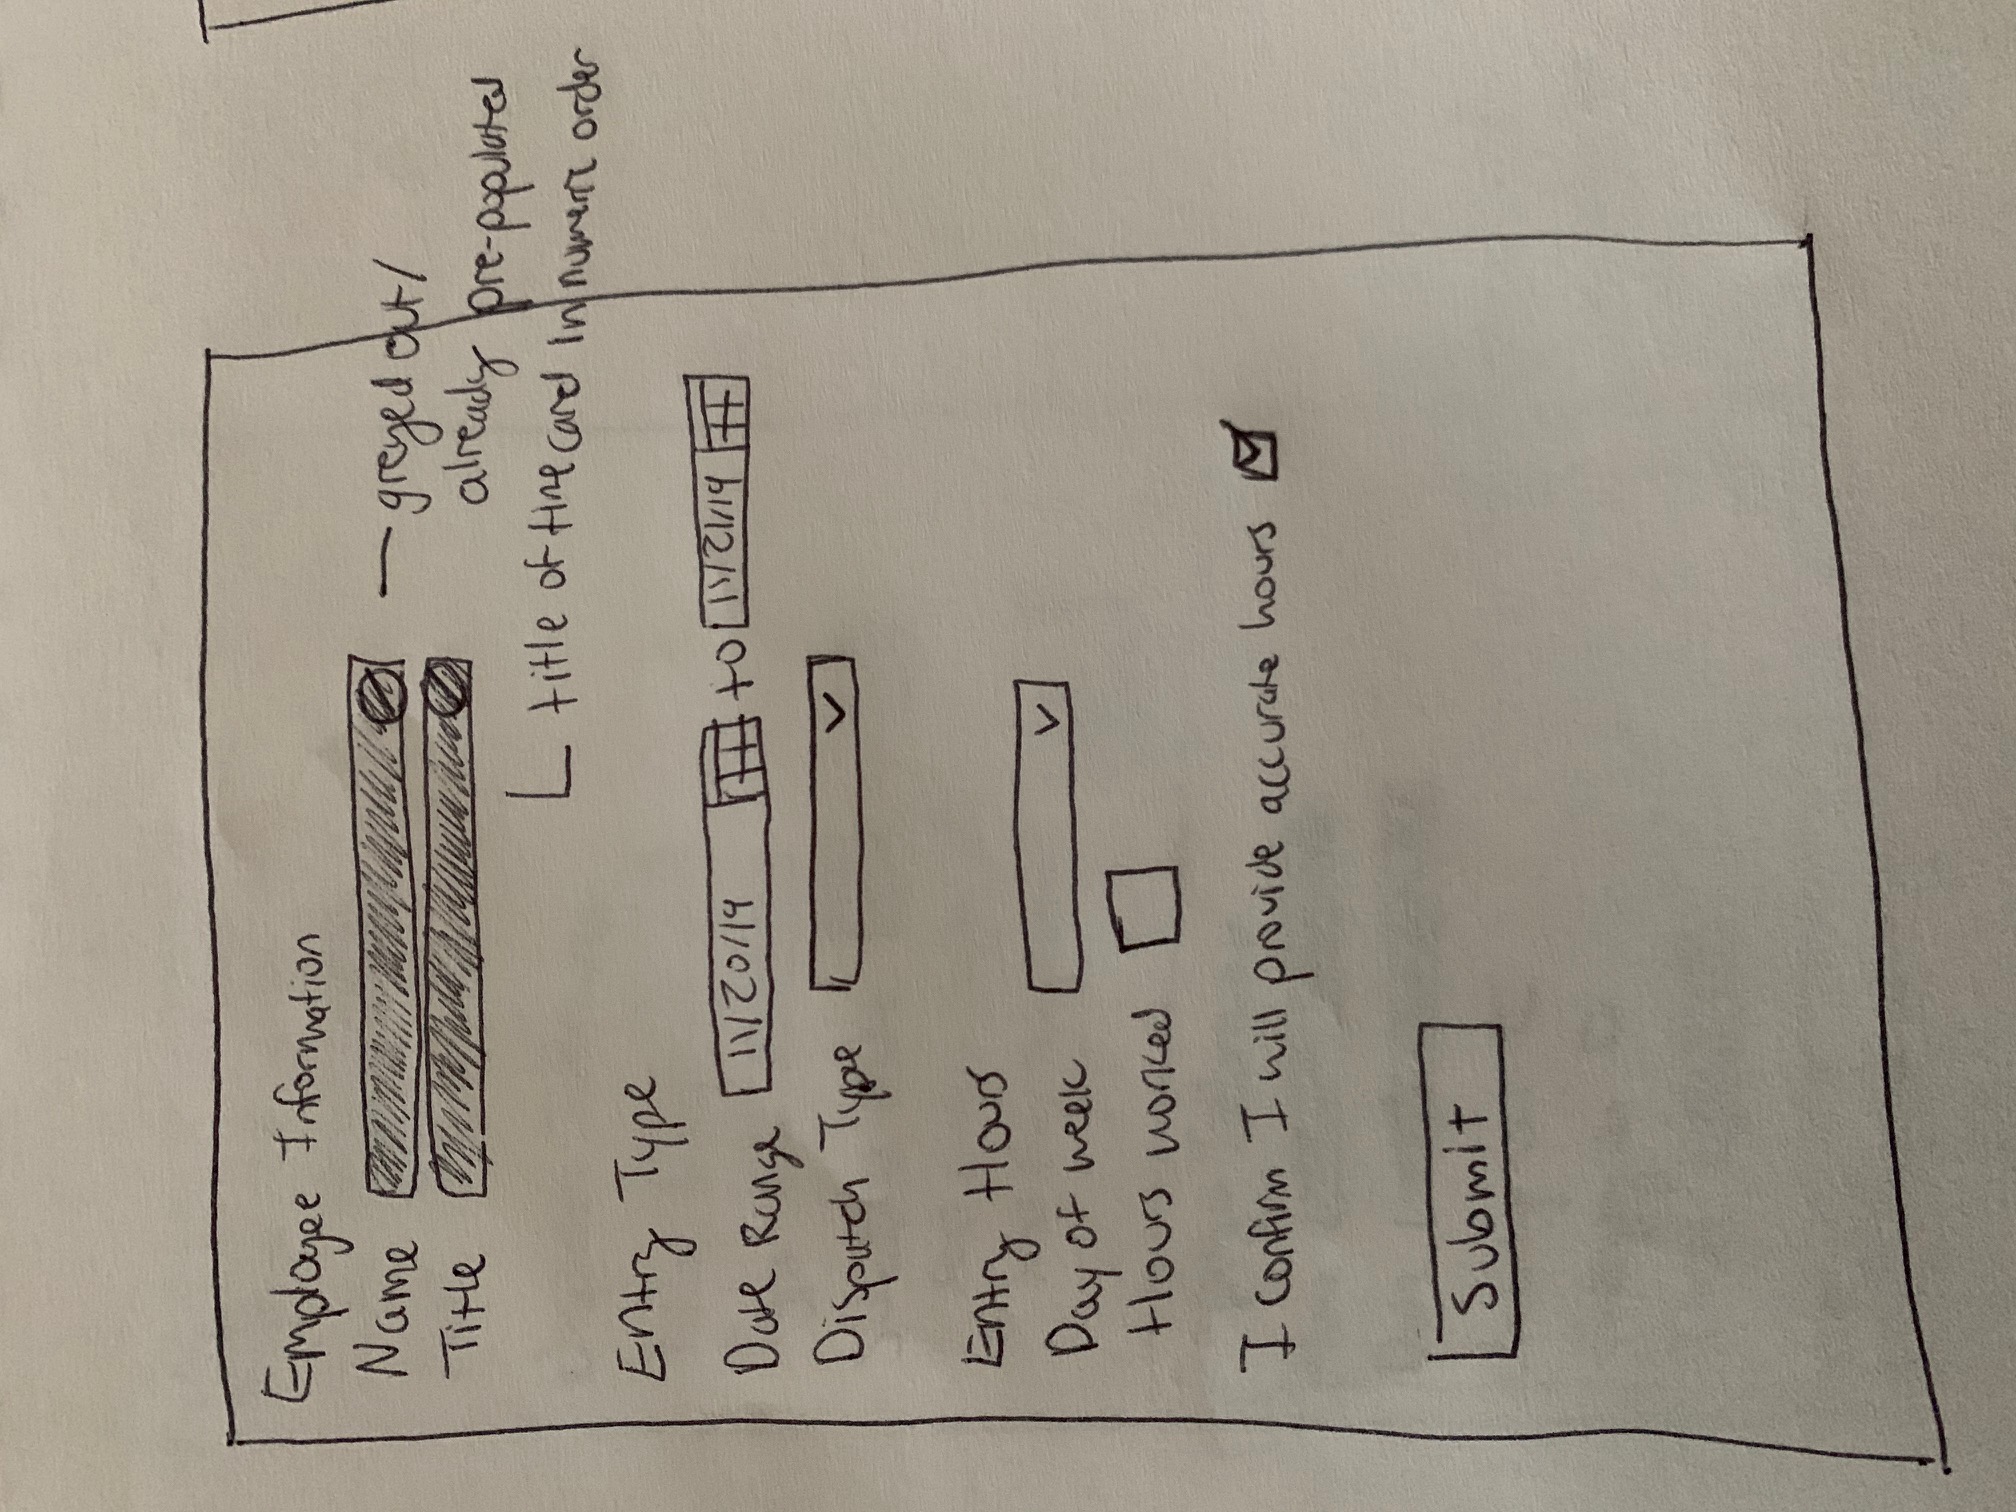 Employee Information
Name
— greyed out/
Title
already pre-populated
title of time card in numeric order
Entry Type
Date Range 11/20/19 to 11/21/19
Dispatch Type
Entry Hours
Day of week
Hours worked
I confirm I will provide accurate hours
Submit